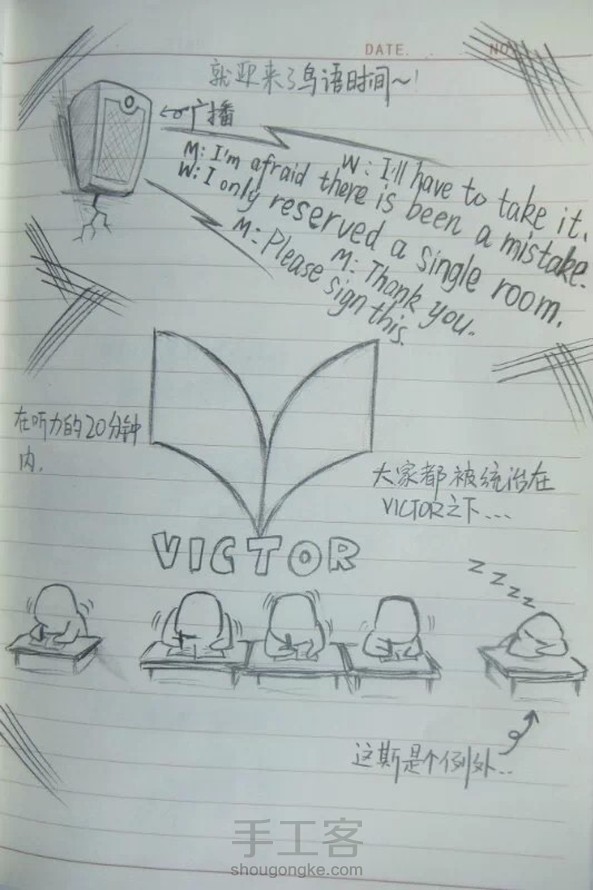 DATE. . NO
就迎来了鸟语时间~!
广播
W: I'll have to take it.
M: I'm afraid there is been a mistake.
W: I only reserved a single room.
M: Thank you.
M: Please sign this.
在听力的20分钟
内.
大家都被统治在
VICTOR之下...
VICTOR
z z z z z
这斯是个例外..
手工客
shougongke.com